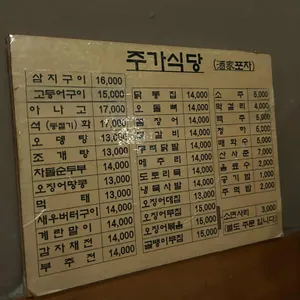 주가식당 (酒家포차)
삼치구이 16,000
고등어구이 15,000
아나고 17,000
석(통찜기)화 17,000
오뎅탕 13,000
조개탕 13,000
차돌순두부 14,000
오징어짬뽕 14,000
먹태 13,000
새우버터구이 14,000
계란말이 14,000
감자채전 14,000
부추전 14,000
닭똥집 14,000
오돌뼈 14,000
14,000
14,000
14,000
14,000
도토리묵 14,000
냉묵사발 14,000
오징어데침 15,000
오징어무침 15,000
오징어볶음 15,000
골뱅이무침 15,000
소주 5,000
막걸리 4,000
맥주 5,000
청하 5,000
매화수
산사춘 7,000
음료수 2,000
공기밥
주먹밥 2,000
소면사리 3,000
(별도 주문 입니다)